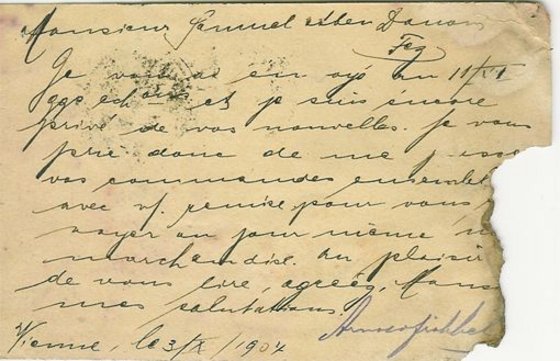 Monsieur Samuel Aben Danan
Fez
Je vous ai en oyé au 11/VI
ége echons et je suis encore
privé de vos nouvelles. Je vous
prie donc de me
vos commandes ensemble
avec v/. remise pour vous
voyer au jour même
marchandise. Au plaisir
de vous lire, agréez, Mons
mes salutations.
Vienne, le 3/X/1904